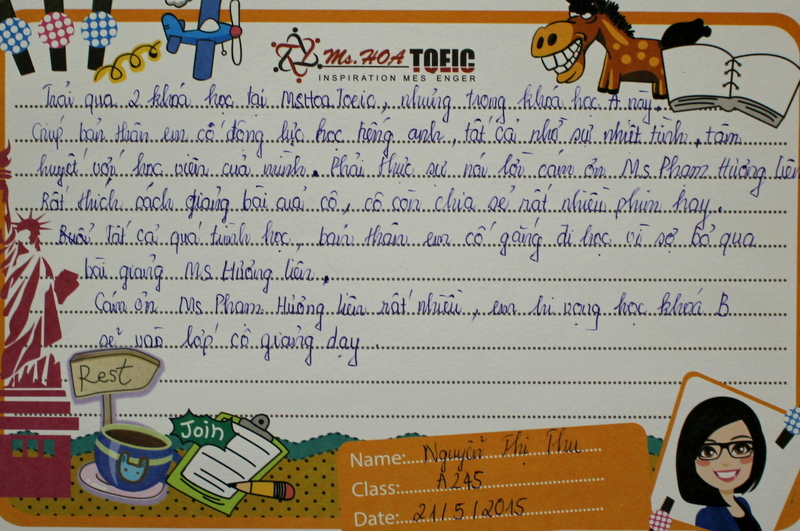 Ms.HOA TOEIC
INSPIRATION MES ENGER
Trải qua 2 khoá học tại MsHoa Toeic, nhưng trong khoá học A này.
Giúp bản thân em có động lực học tiếng anh, tất cả nhờ sự nhiệt tình, tâm
huyết với học viên của mình. Phải thực sự nói lời cám ơn Ms. Phạm Hương Liên
Rất thích cách giảng bài của cô, cô còn chia sẻ rất nhiều phim hay.
Tất cả quá trình học, bản thân em cố gắng đi học vì sợ bỏ qua
bài giảng Ms. Hương liên.
Cám ơn Ms Phạm Hương liên rất nhiều, em hi vọng học khoá B
sẽ vào lớp cô giảng dạy.
Rest
Join
Name: Nguyễn Thị Thu
Class: A245
Date: 21/5/2015